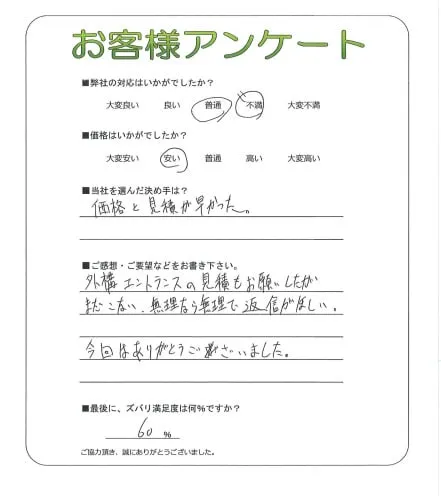 お客様アンケート
■弊社の対応はいかがでしたか?
大変良い 良い 普通 不満 大変不満
■価格はいかがでしたか?
大変安い 安い 普通 高い 大変高い
■当社を選んだ決め手は?
価格と見積が早かった。
■ご感想・ご要望などをお書き下さい。
外構エントランスの見積もお願いしたが
まだこない、無理なら無理で返信がほしい。
今回はありがとうございました。
■最後に、ズバリ満足度は何%ですか?
60 %
ご協力頂き、誠にありがとうございました。